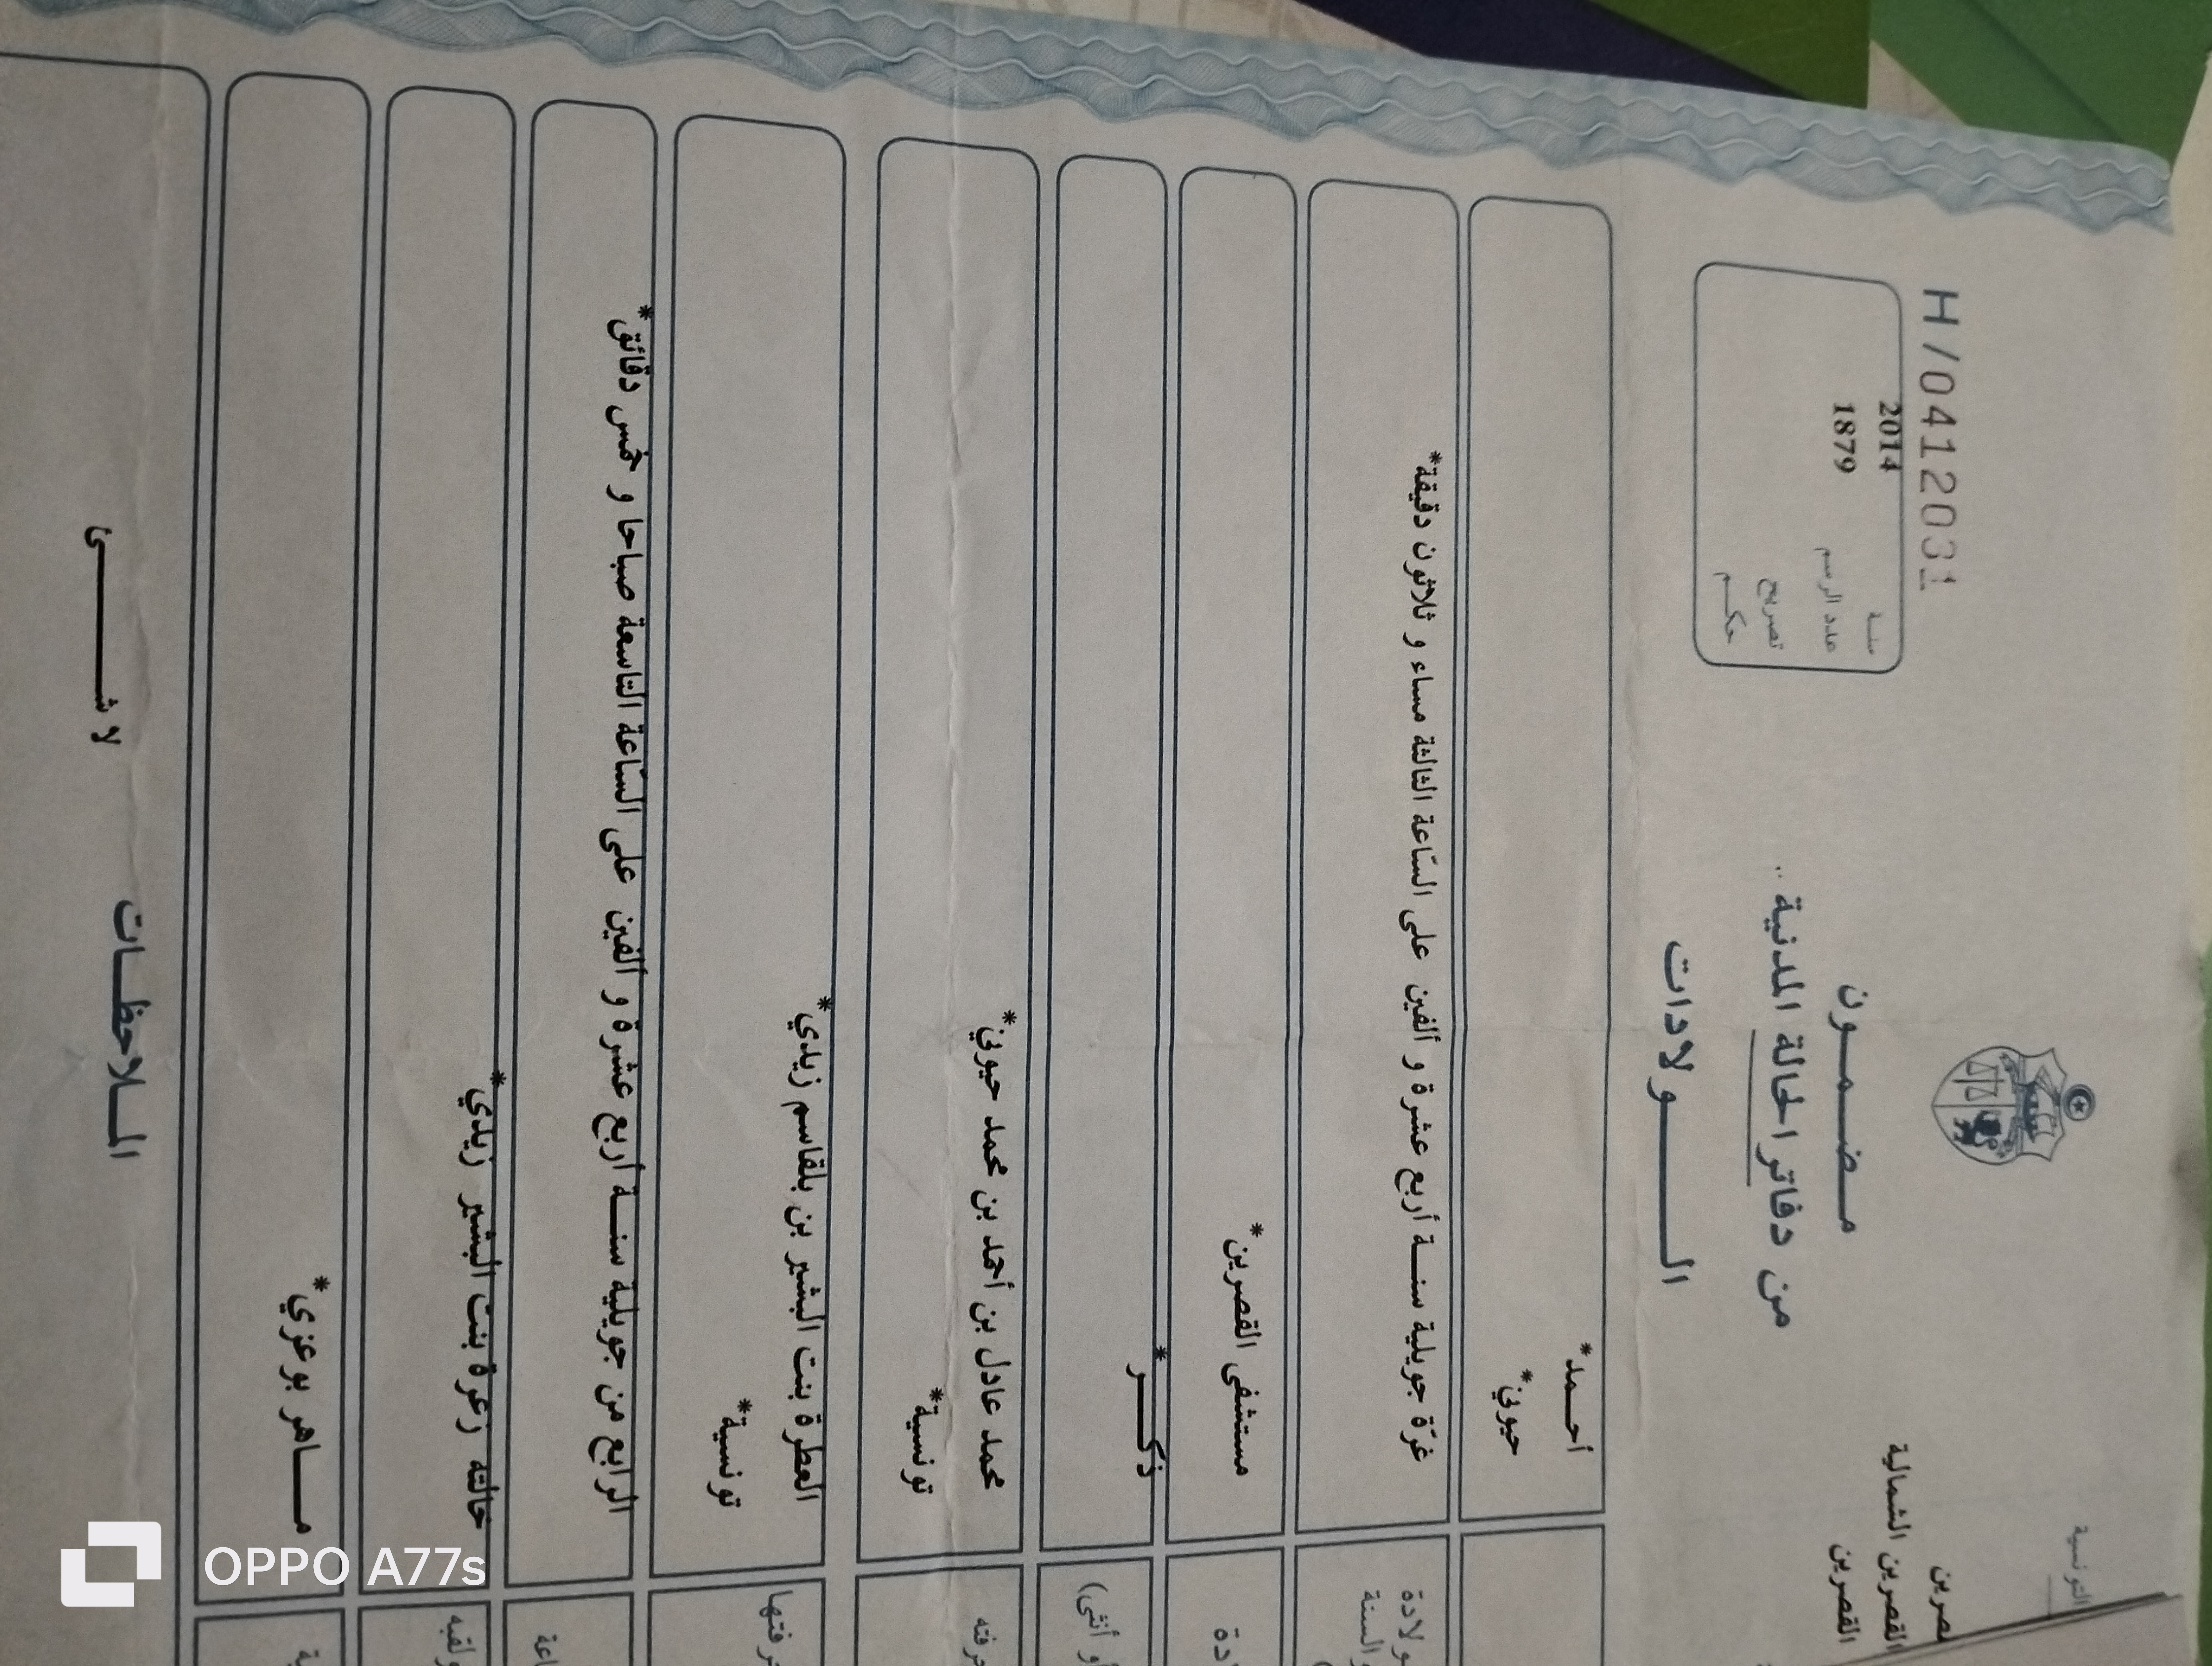 H/0412031
التونسية
القصرين الشمالية
القصرين
سنة 2014
عدد الرسم 1879
تصريح
حكم
مضمون
من دفاتر الحالة المدنية
الولادات
أحمد*
حيوني*
غرّة جويلية سنة أربع عشرة و ألفين على السّاعة الثالثة مساء و ثلاثون دقيقة*
والسنة
مستشفى القصرين*
ذكر*
أو أنثى)
محمد عادل بن أحمد بن محمد حيوني*
تونسية*
العطرة بنت البشير بن بلقاسم زيدي*
تونسية*
الرابع من جويلية سنة أربع عشرة و ألفين على السّاعة التاسعة صباحا و خمس دقائق*
خالته زعرة بنت البشير زيدي*
ماهر بوعزي*
الملاحظات
لا شئ
OPPO A77s